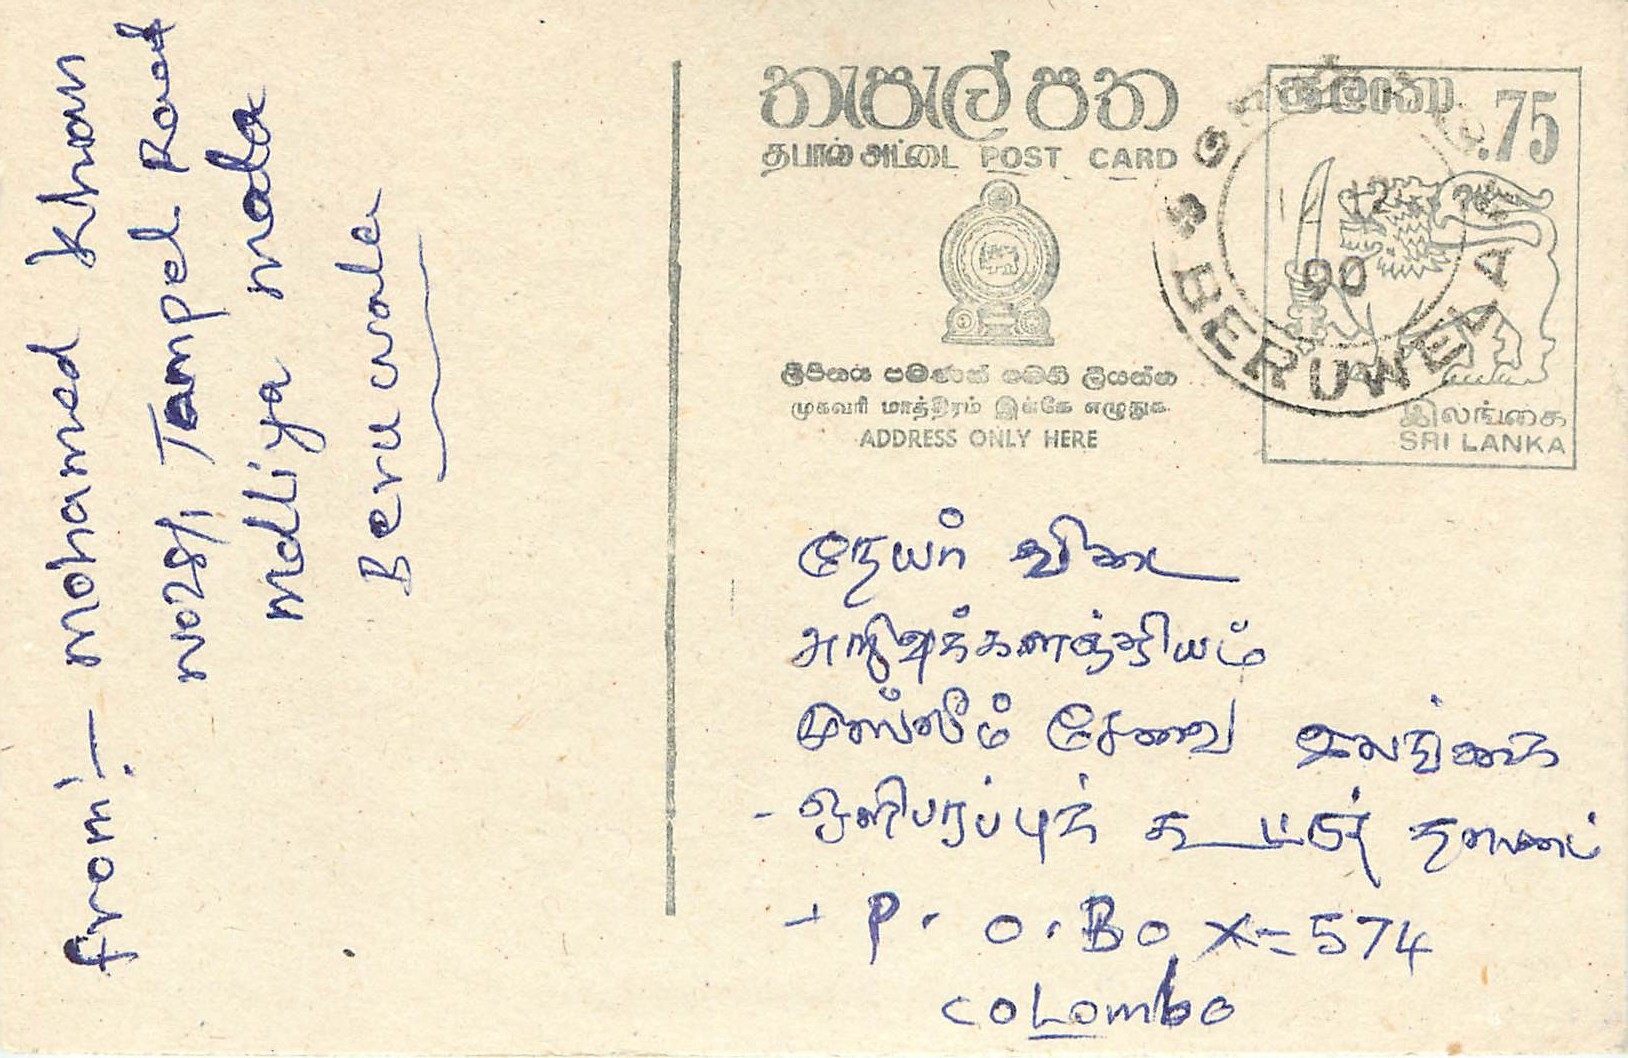 from:- mohamed Khan
No 28/1 Tampel Road
Maliya moda
Beruwala
තැපැල් පත
தபால் அட்டை POST CARD
ලිපිනය පමණක් මෙහි ලියන්න
முகவரி மாத்திரம் இங்கே எழுதுக
ADDRESS ONLY HERE
ශ්‍රී ලංකා
.75
இலங்கை
SRI LANKA
BERUWELA
90
நேயர் விடை
அறிவுக்களஞ்சியம்
முஸ்லீம் சேவை இலங்கை
- ஒளிபரப்புக்
- P.O.Box = 574
Colombo